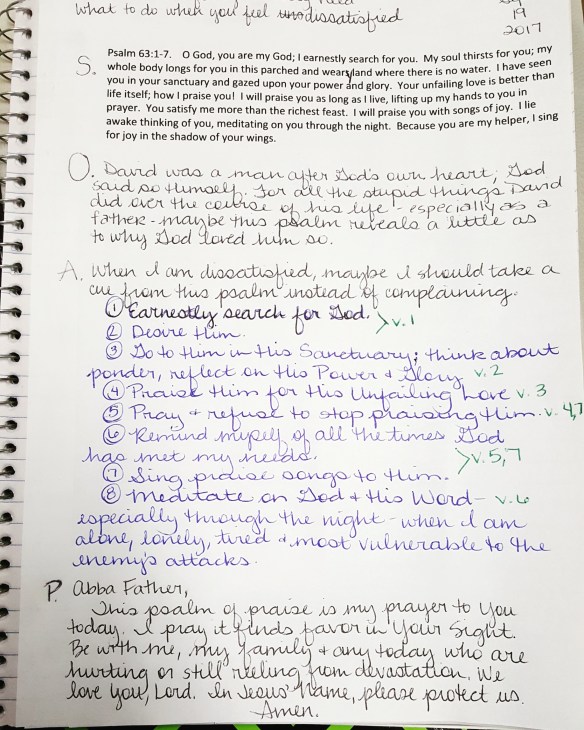 What to do when you feel dissatisfied
19
2017
S. Psalm 63:1-7. O God, you are my God; I earnestly search for you. My soul thirsts for you; my
whole body longs for you in this parched and weary land where there is no water. I have seen
you in your sanctuary and gazed upon your power and glory. Your unfailing love is better than
life itself; how I praise you! I will praise you as long as I live, lifting up my hands to you in
prayer. You satisfy me more than the richest feast. I will praise you with songs of joy. I lie
awake thinking of you, meditating on you through the night. Because you are my helper, I sing
for joy in the shadow of your wings.
O. David was a man after God's own heart; God
said so Himself. For all the stupid things David
did over the course of his life - especially as a
father - maybe this psalm reveals a little as
to why God loved him so.
A. When I am dissatisfied, maybe I should take a
cue from this psalm instead of complaining.
① Earnestly search for God. >v. 1
② Desire Him.
③ Go to Him in His Sanctuary; think about
ponder, reflect on His Power & Glory v. 2
④ Praise Him for His Unfailing Love v. 3
⑤ Pray & refuse to stop praising Him. v. 4,7
⑥ Remind myself of all the times God
has met my needs. >v. 5,7
⑦ Sing praise songs to Him.
⑧ Meditate on God & His Word - v. 6
especially through the night - when I am
alone, lonely, tired & most vulnerable to the
enemy's attacks.
P. Abba Father,
This psalm of praise is my prayer to You
today. I pray it finds favor in Your Sight.
Be with me, my family & any today who are
hurting or still reeling from devastation. We
love You, Lord. In Jesus' Name, please protect us.
Amen.